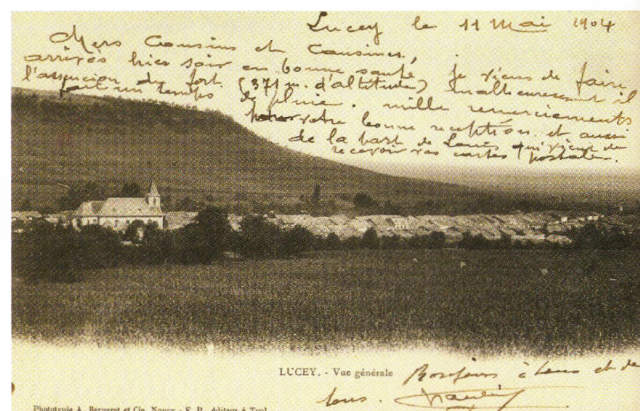 Lucey le 11 Mai 1904
Mers Cousins et Cousines,
arrivés hier soir en bonne santé, je viens de faire
l'assencion du fort (371 m. d'altitude) malheureusement il
fait un temps de pluie. mille remerciements
pour votre bonne reception et aussi
de la part de Louis qui vient de
recevoir vos cartes postales.
LUCEY. - Vue générale
Bonjours à tous et de
tous.
Phototypie A. Bergeret et Cie, Nancy - E. P. éditeur à Toul